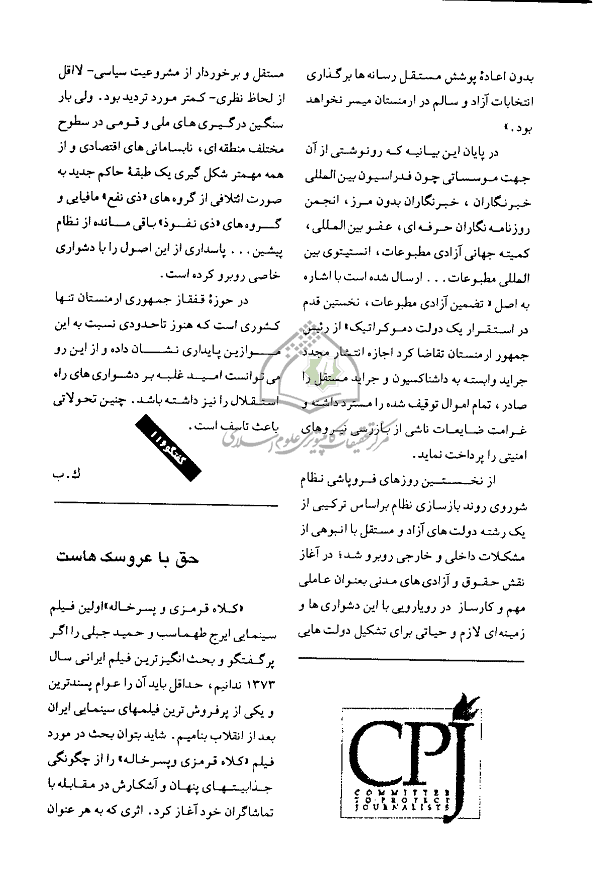 بدون اعادهٔ پوشش مستقل رسانه ها برگذاری
انتخابات آزاد و سالم در ارمنستان میسر نخواهد
بود.»
در پایان این بیانیه که رونوشتی از آن
جهت موسساتی چون فدراسیون بین المللی
خبرنگاران، خبرنگاران بدون مرز، انجمن
روزنامه نگاران حرفه ای، عفو بین المللی،
کمیته جهانی آزادی مطبوعات، انستیتوی بین
المللی مطبوعات... ارسال شده است با اشاره
به اصل «تضمین آزادی مطبوعات، نخستین قدم
در استقرار یک دولت دموکراتیک» از رئیس
جمهور ارمنستان تقاضا کرد اجازه انتشار مجدد
جراید وابسته به داشناکسیون و جراید مستقل را
صادر، تمام اموال توقیف شده را مسترد داشته و
غرامت ضایعات ناشی از بازرسی نیروهای
امنیتی را پرداخت نماید.
از نخستین روزهای فروپاشی نظام
شوروی روند بازسازی نظام براساس ترکیبی از
یک رشته دولت های آزاد و مستقل با انبوهی از
مشکلات داخلی و خارجی روبرو شد؛ در آغاز
نقش حقوق و آزادی های مدنی بعنوان عاملی
مهم و کارساز در رویارویی با این دشواری ها و
زمینه ای لازم و حیاتی برای تشکیل دولت هایی
CPJ
COMMITTEE
TO PROTECT
JOURNALISTS
مستقل و برخوردار از مشروعیت سیاسی- لااقل
از لحاظ نظری- کمتر مورد تردید بود. ولی بار
سنگین درگیری های ملی و قومی در سطوح
مختلف منطقه ای، نابسامانی های اقتصادی و از
همه مهمتر شکل گیری یک طبقهٔ حاکم جدید به
صورت ائتلافی از گروه های «ذی نفع» مافیایی و
گروه های «ذی نفوذ» باقی مانده از نظام
پیشین... پاسداری از این اصول را با دشواری
خاصی روبرو کرده است.
در حوزهٔ قفقاز جمهوری ارمنستان تنها
کشوری است که هنوز تاحدودی نسبت به این
موازین پایداری نشان داده و از این رو
می توانست امید غلبه بر دشواری های راه
استقلال را نیز داشته باشد. چنین تحولاتی
باعث تاسف است.
مرکز تحقیقات کامپیوتری علوم اسلامی
گفتگو ۱۱۶
ک.ب
حق با عروسک هاست
«کلاه قرمزی و پسرخاله» اولین فیلم
سینمایی ایرج طهماسب و حمید جبلی را اگر
پرگفتگو و بحث انگیزترین فیلم ایرانی سال
۱۳۷۳ ندانیم، حداقل باید آن را عوام پسندترین
و یکی از پرفروش ترین فیلمهای سینمایی ایران
بعد از انقلاب بنامیم. شاید بتوان بحث در مورد
فیلم «کلاه قرمزی وپسرخاله» را از چگونگی
جذابیتهای پنهان و آشکارش در مقابله با
تماشاگران خود آغاز کرد. اثری که به هر عنوان